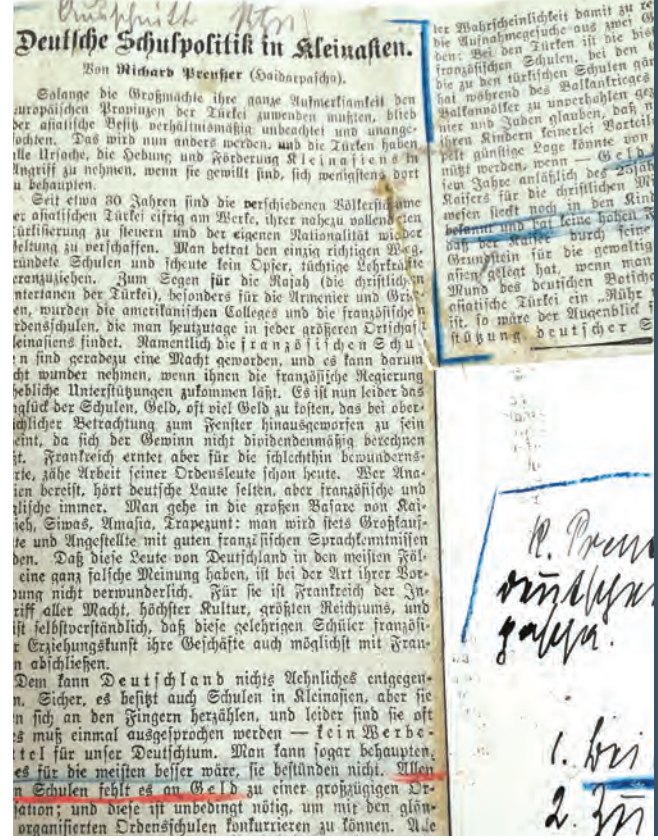 Ausschnitt
Deutsche Schulpolitik in Kleinasien.
Von Richard Preußer (Haidarpascha).
Solange die Großmächte ihre ganze Aufmerksamkeit den
europäischen Provinzen der Türkei zuwenden mußten, blieb
der asiatische Besitz verhältnismäßig unbeachtet und unange-
fochten. Das wird nun anders werden, und die Türken haben
alle Ursache, die Hebung und Förderung Kleinasiens in
Angriff zu nehmen, wenn sie gewillt sind, sich wenigstens dort
zu behaupten.
Seit etwa 30 Jahren sind die verschiedenen Völkerstämme
er asiatischen Türkei eifrig am Werke, ihrer nahezu vollendeten
Türkisierung zu steuern und der eigenen Nationalität wieder
Geltung zu verschaffen. Man betrat den einzig richtigen Weg,
gründete Schulen und scheute kein Opfer, tüchtige Lehrkräfte
heranzuziehen. Zum Segen für die Rajah (die christlichen
ntertanen der Türkei), besonders für die Armenier und Grie-
en, wurden die amerikanischen Colleges und die französischen
rdensschulen, die man heutzutage in jeder größeren Ortschaft
leinasiens findet. Namentlich die französischen Schu-
n sind geradezu eine Macht geworden, und es kann darum
cht wunder nehmen, wenn ihnen die französische Regierung
hebliche Unterstützungen zukommen läßt. Es ist nun leider das
nglück der Schulen, Geld, oft viel Geld zu kosten, das bei ober-
chlicher Betrachtung zum Fenster hinausgeworfen zu sein
eint, da sich der Gewinn nicht dividendenmäßig berechnen
ßt. Frankreich erntet aber für die schlechthin bewunderns-
rte, zähe Arbeit seiner Ordensleute schon heute. Wer Ana-
ien bereist, hört deutsche Laute selten, aber französische und
lische immer. Man gehe in die großen Basare von Kai-
ieh, Siwas, Amasia, Trapezunt: man wird stets Großkauf-
te und Angestellte mit guten französischen Sprachkenntnissen
den. Daß diese Leute von Deutschland in den meisten Fäl-
eine ganz falsche Meinung haben, ist bei der Art ihrer Vor-
ung nicht verwunderlich. Für sie ist Frankreich der In-
riff aller Macht, höchster Kultur, größten Reichtums, und
ist selbstverständlich, daß diese gelehrigen Schüler französi-
r Erziehungskunst ihre Geschäfte auch möglichst mit Fran-
n abschließen.
Dem kann Deutschland nichts Aehnliches entgegen-
n. Sicher, es besitzt auch Schulen in Kleinasien, aber sie
n sich an den Fingern herzählen, und leider sind sie oft
s muß einmal ausgesprochen werden — kein Werbe-
tel für unser Deutschtum. Man kann sogar behaupten,
es für die meisten besser wäre, sie bestünden nicht. Allen
n Schulen fehlt es an Geld zu einer großzügigen Or-
sation; und diese ist unbedingt nötig, um mit den glän-
organisierten Ordensschulen konkurrieren zu können. Alle
ter Wahrscheinlichkeit damit zu re
die Aufnahmegesuche aus zwei G
den: Bei den Türken ist die bis
französischen Schulen, bei den
die zu den türkischen Schulen gän
hat während des Balkankrieges
Balkanvölker zu unverhohlen gez
nier und Juden glauben, daß
ihren Kindern keinerlei Vorteil
pelt günstige Lage könnte von
nützt werden, wenn — Geld
sem Jahre anläßlich des 25jäh
Kaisers für die christlichen Mi
wesen steckt noch in den Kind
bekannt und hat keine hohen
daß der Kaiser durch seine
Grundstein für die gewaltig
asien gelegt hat, wenn man
Mund des deutschen Botscha
asiatische Türkei ein „Rühr
ist, so wäre der Augenblick
stützung deutscher S
deutsche
pascha.
1. bei
2. Zu